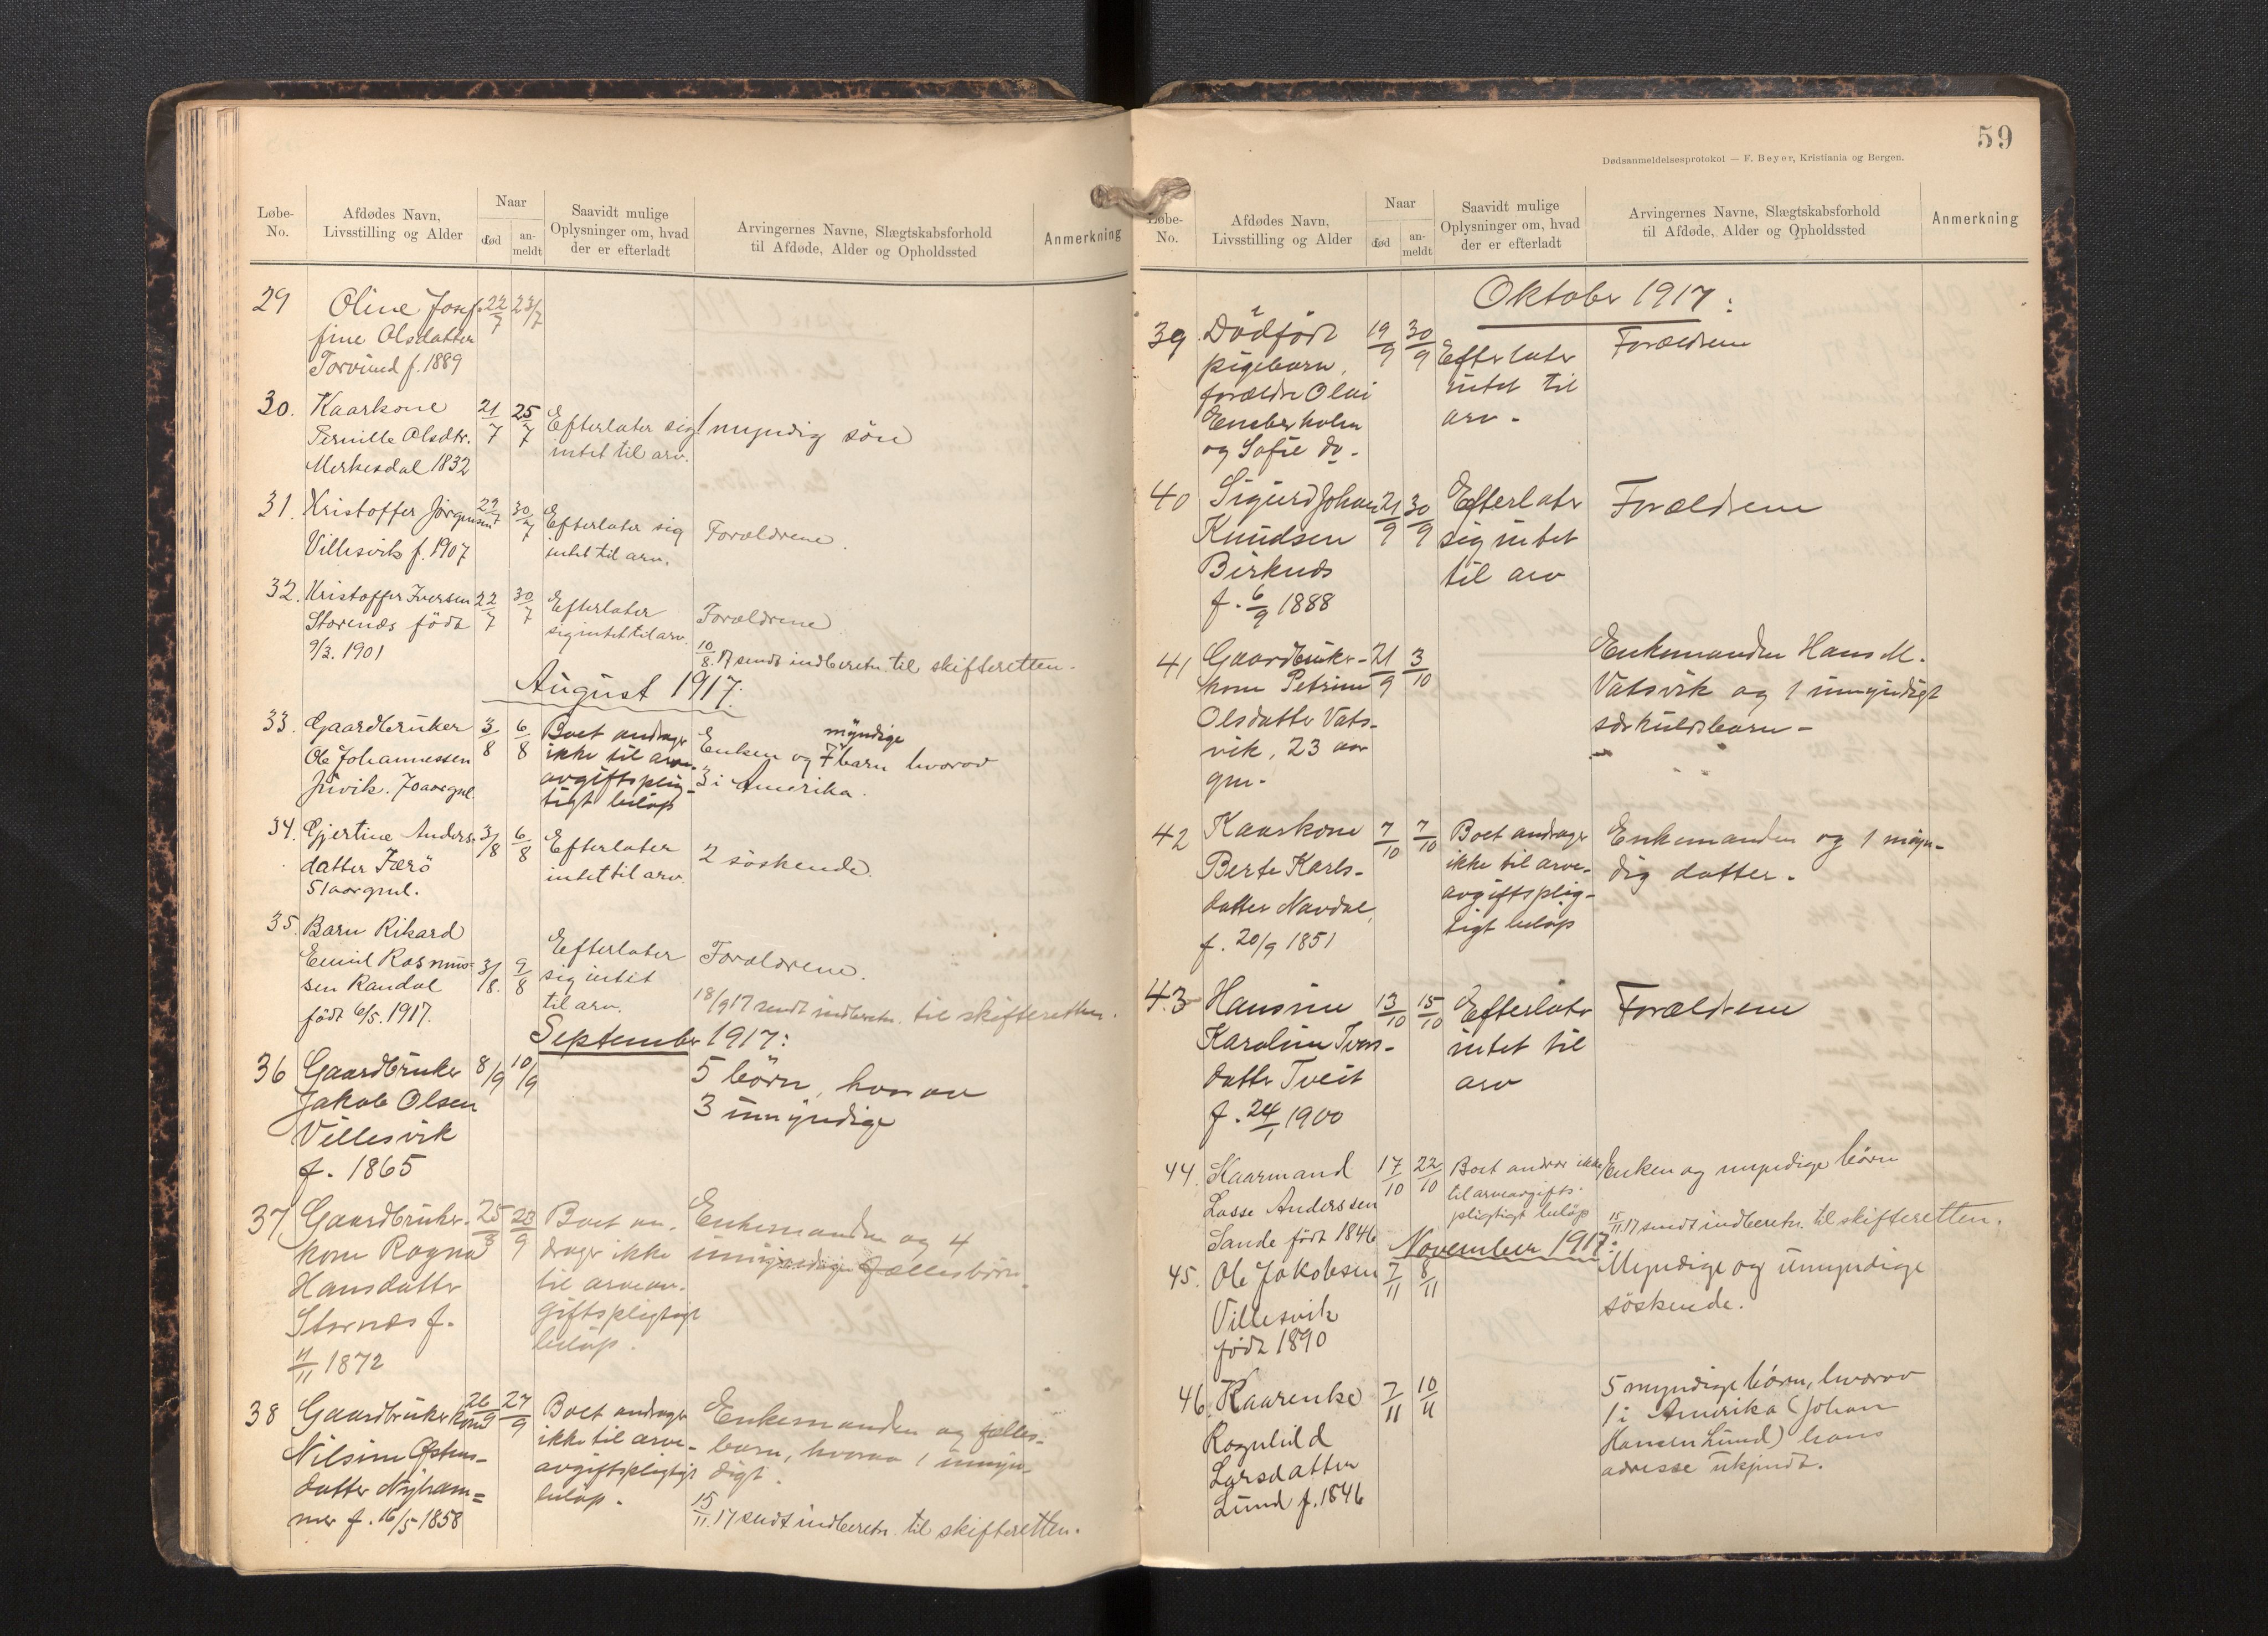 Løbe-
No.
Afdødes Navn,
Livsstilling og Alder
Naar
død
an-
meldt
Saavidt mulige
Oplysninger om, hvad
der er efterladt
Arvingernes Navne, Slægtskabsforhold
til Afdøde, Alder og Opholdssted
Anmerkning
29 Oline Josef- 22/7 23/7
fine Olsdatter
Torvund f. 1889
30. Kaarkone 21/7 25/7 Efterlater sig 1 myndig sön
Pernille Olsdtr. intet til arv.
Merkesdal 1832
31. Kristoffer Jörgensen 22/7 30/7 Efterlater sig Forældrene.
Villesvik f. 1907 intet til arv.
32. Kristoffer Iversen 22/7 30/7 Efterlater Forældrene
Storenes född sig intet til arv.
9/3. 1901 10/8.17 sendt indberetn. til skifteretten.
August 1917:
33. Gaardbruker 3/8 6/8 Boet andrager Enken og 7 myndige barn hvorav
Ole Johannessen ikke til arve- 3 i Amerika.
Juvik. 70 aar gml. avgiftsplig-
tigt belöp
34. Gjertine Anders- 3/8 6/8 Efterlater 2 söskende.
datter Færö intet til arv.
51 aar gml.
35. Barn Rikard
Emil Rasmus- 3/8. 9/8 Efterlater Forældrene.
sen Randal sig intet
født 6/5. 1917. til arv. 18/9 17 sendt indberetn. til skifteretten.
September 1917:
36 Gaardbruker 8/9 10/9 5 börn, hvorav
Jakob Olsen 3 umyndige
Villesvik
f. 1865
37 Gaardbruker- 25/3 23/9 Boet an- Enkemanden og 4
kone Ragna drager ikke umyndige fællesbörn.
Hansdatter til arveav-
Stornæs f. giftspligtigt
4/11 1872 belöp.
38 Gaardbrukerkone 26/9 27/9 Boet andrager Enkemanden og fælles-
Nilsine Östens- ikke til arve- barn, hvorav 1 umyn-
datter Nyham= avgiftspligtigt digt.
mer f. 16/5 1858 belöp. 15/11.17 sendt indberetn. til skifteretten.
59
Dødsanmeldelsesprotokol — F. Beyer, Kristiania og Bergen.
Løbe-
No.
Afdødes Navn,
Livsstilling og Alder
Naar
død
an-
meldt
Saavidt mulige
Oplysninger om, hvad
der er efterladt
Arvingernes Navne, Slægtskabsforhold
til Afdøde, Alder og Opholdssted
Anmerkning
Oktober 1917:
39. Dödfödt 19/9 30/9 Efterlater Forældrene
pigebarn, intet til
forældre Olai arv.
Enebærholm
og Sofie do.
40 Sigurd Johan 21/9 30/9 Efterlater Forældrene
Knudsen sig intet
Birknes til arv
f. 6/9 1888
41 Gaardbruker- 21/9 3/10 Enkemanden Hans M.
kone Petrine Vatsvik og 1 umyndigt
Olsdatter Vats- særkuldsbarn.
vik, 23 aar
gm.
42 Kaarkone 7/10 7/10 Boet andrager Enkemanden og 1 myn-
Berte Karls- ikke til arve- dig datter.
datter Navdal, avgiftsplig-
f. 20/9 1851 tigt belöp
43 Hansine 13/10 15/10 Efterlater Forældrene
Karoline Ivers- intet til
datter Tveit arv
f. 24/1 1900
44. Kaarmand 17/10 22/10 Boet andrar ikke Enken og myndige börn
Lasse Anderssen til arveavgifts-
Sande född 1846 pligtigt belöp 15/11.17 sendt indberetn. til skifteretten.
November 1917:
45. Ole Jakobsen 7/11 8/11 Myndige og umyndige
Villesvik söskende.
födt 1890
46. Kaarenke 7/11 10/11 5 myndige börn, hvorav
Ragnhild 1 i Amerika (Johan
Larsdatter Hansen Lund) hans
Lund f. 1846 adresse ukjendt.